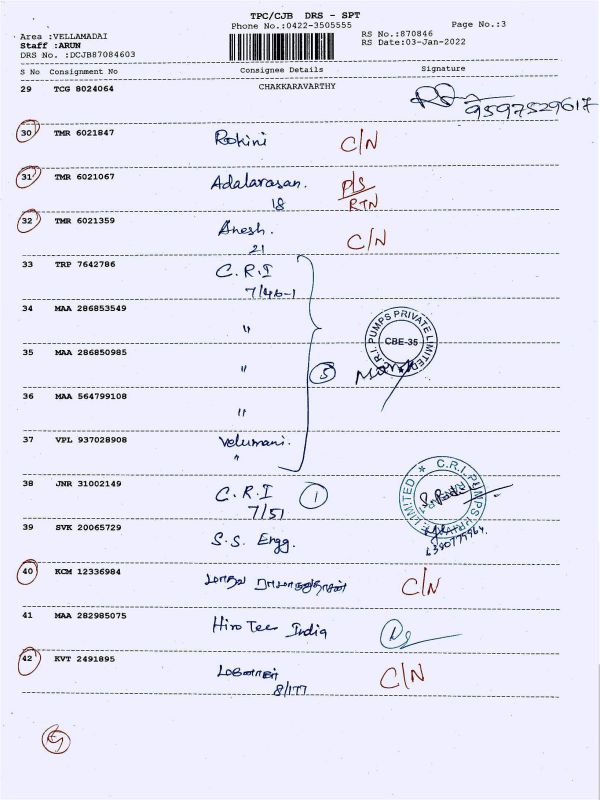 TPC/CJB DRS - SPT
Phone No.:0422-3505555
Page No.:3
Area :VELLAMADAI
Staff :ARUN
DRS No. :DCJB87084603
RS No.:870846
RS Date:03-Jan-2022
S No Consignment No Consignee Details Signature
29 TCG 8024064 CHAKKARAVARTHY
9597529617
30 TMR 6021847 Rokini C/N
31 TMR 6021067 Adalarasan. P/S
18 RTN
32 TMR 6021359 Anesh. C/N
21
33 TRP 7642786 C.R.I
7/46-1
34 MAA 286853549 "
C.R.I. PUMPS PRIVATE LIMITED
CBE-35
35 MAA 286850985 " 5
36 MAA 564799108 "
37 VPL 937028908 Velumani.
"
38 JNR 31002149 C.R.I 1
7/51
C.R.I. PUMPS PRIVATE LIMITED
39 SVK 20065729 S.S. Engg.
40 KCM 12336984 C/N
41 MAA 282985075 Hiro Tec India
42 KVT 2491895 மனோகர் C/N
8/177